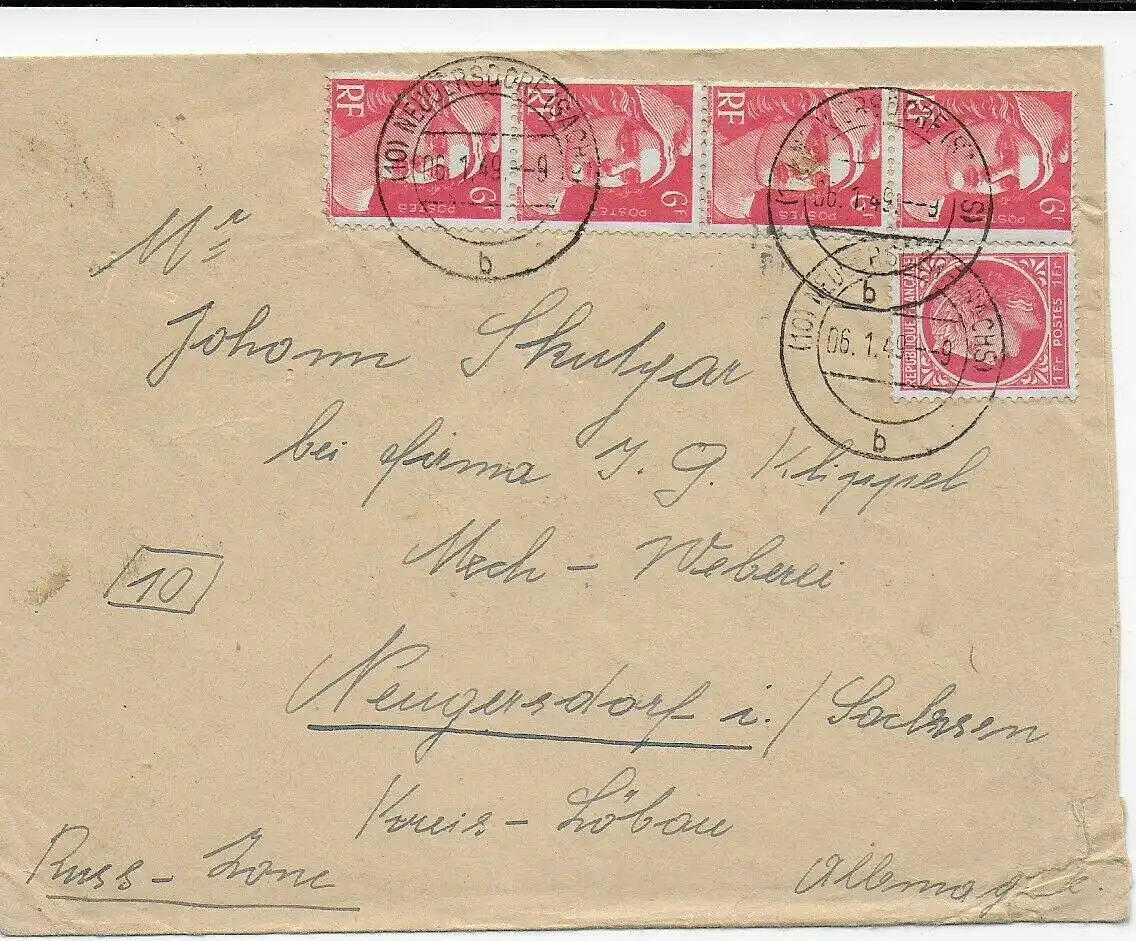 RF RF RF RF
6F POSTES 6F POSTES 6F POSTES 6F
(10) NEUGERSDORF (SACHS)
06.1.49.--9
b
06.1.49.--9
b
RÉPUBLIQUE FRANÇAISE
1Fr POSTES 1Fr
(10) NEUGERSDORF (SACHS)
06.1.49.--9
b
Mr
Johann Skutyar
bei Firma J. G. Klippel
Mech - Weberei
10
Neugersdorf i./Sachsen
Kreis - Löbau
Russ - Zone
Allemagne.